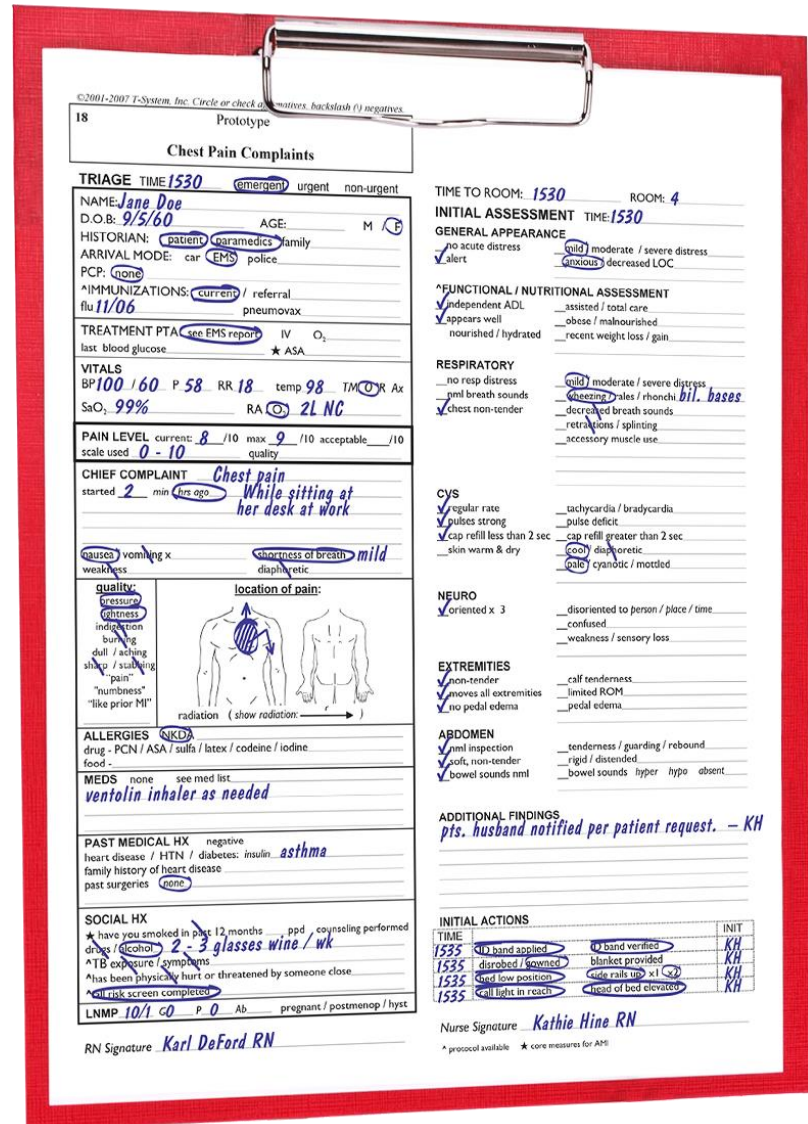 ©2001-2007 T-System, Inc. Circle or check a natives, backslash (\) negatives.
18 Prototype
Chest Pain Complaints
TRIAGE TIME 1530 emergent urgent non-urgent
NAME: Jane Doe
D.O.B: 9/5/60 AGE: M / F
HISTORIAN: patient paramedics family
ARRIVAL MODE: car EMS police
PCP: none
^IMMUNIZATIONS: current / referral
flu 11/06 pneumovax
TREATMENT PTA see EMS report IV O₂
last blood glucose ★ ASA
VITALS
BP 100 / 60 P 58 RR 18 temp 98 TM O R Ax
SaO₂ 99% RA O₂ 2L NC
PAIN LEVEL current: 8 /10 max 9 /10 acceptable /10
scale used 0 - 10 quality
CHIEF COMPLAINT Chest pain
started 2 min hrs ago While sitting at
her desk at work
nausea / vomiting x shortness of breath mild
weakness diaphoretic
quality:
pressure
tightness
indigestion
burning
dull / aching
sharp / stabbing
"pain"
"numbness"
"like prior MI"
location of pain:
radiation ( show radiation: )
ALLERGIES NKDA
drug - PCN / ASA / sulfa / latex / codeine / iodine
food -
MEDS none see med list
ventolin inhaler as needed
PAST MEDICAL HX negative
heart disease / HTN / diabetes: insulin asthma
family history of heart disease
past surgeries none
SOCIAL HX
★ have you smoked in past 12 months ppd counseling performed
drugs / alcohol 2 - 3 glasses wine / wk
^TB exposure / symptoms
^has been physically hurt or threatened by someone close
^fall risk screen completed
LNMP 10/1 G0 P 0 Ab pregnant / postmenop / hyst
RN Signature Karl DeFord RN
TIME TO ROOM: 1530 ROOM: 4
INITIAL ASSESSMENT TIME: 1530
GENERAL APPEARANCE
no acute distress mild / moderate / severe distress
alert anxious / decreased LOC
^FUNCTIONAL / NUTRITIONAL ASSESSMENT
independent ADL assisted / total care
appears well obese / malnourished
nourished / hydrated recent weight loss / gain
RESPIRATORY
no resp distress mild / moderate / severe distress
nml breath sounds wheezing / rales / rhonchi bil. bases
chest non-tender decreased breath sounds
retractions / splinting
accessory muscle use
CVS
regular rate tachycardia / bradycardia
pulses strong pulse deficit
cap refill less than 2 sec cap refill greater than 2 sec
skin warm & dry cool / diaphoretic
pale / cyanotic / mottled
NEURO
oriented x 3 disoriented to person / place / time
confused
weakness / sensory loss
EXTREMITIES
non-tender calf tenderness
moves all extremities limited ROM
no pedal edema pedal edema
ABDOMEN
nml inspection tenderness / guarding / rebound
soft, non-tender rigid / distended
bowel sounds nml bowel sounds hyper hypo absent
ADDITIONAL FINDINGS
pts. husband notified per patient request. – KH
INITIAL ACTIONS
TIME INIT
1535 ID band applied ID band verified KH
1535 disrobed / gowned blanket provided KH
1535 bed low position side rails up x1 x2 KH
1535 call light in reach head of bed elevated KH
Nurse Signature Kathie Hine RN
^ protocol available ★ core measures for AMI